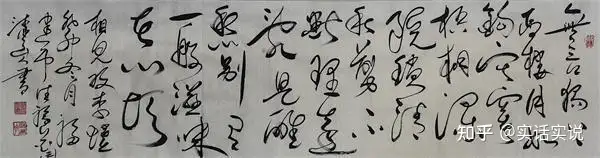 無言獨上
西樓月如
鉤寂寞
梧桐深
院鎖清
秋剪不
斷理還
亂是離
愁別是
一般滋味
在心頭
相見歡李煜
冬月
書
知乎 @实话实说